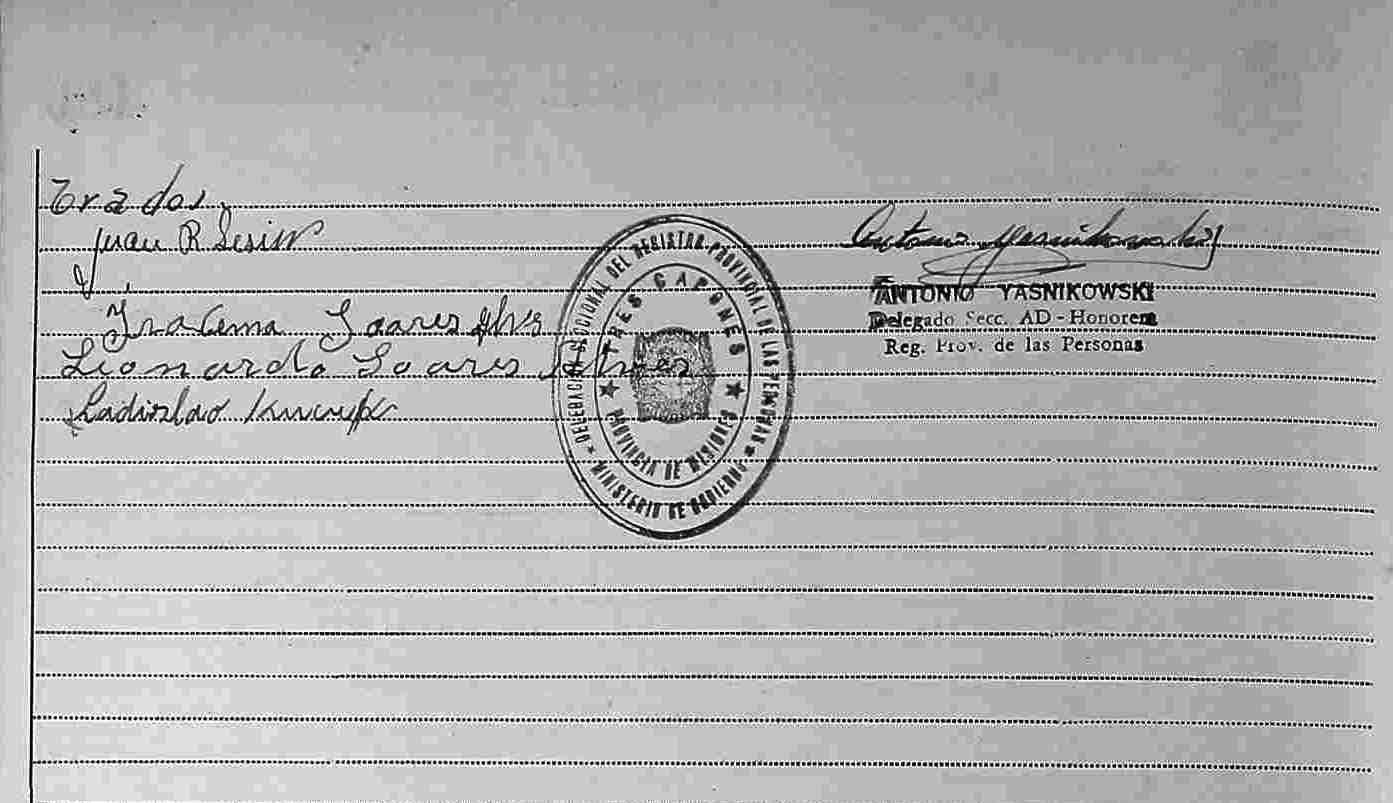 trados
Juan R
Iracema Soares Alves
Leonardo Soares Alves
Ladislao
Antonio Yasnikowski
ANTONIO YASNIKOWSKI
Delegado Secc. AD-Honorem
Reg. Prov. de las Personas
DELEGACION SECCIONAL DEL REGISTRO PROVINCIAL DE LAS PERSONAS
TRES CAPONES
PROVINCIA DE MISIONES
MINISTERIO DE GOBIERNO